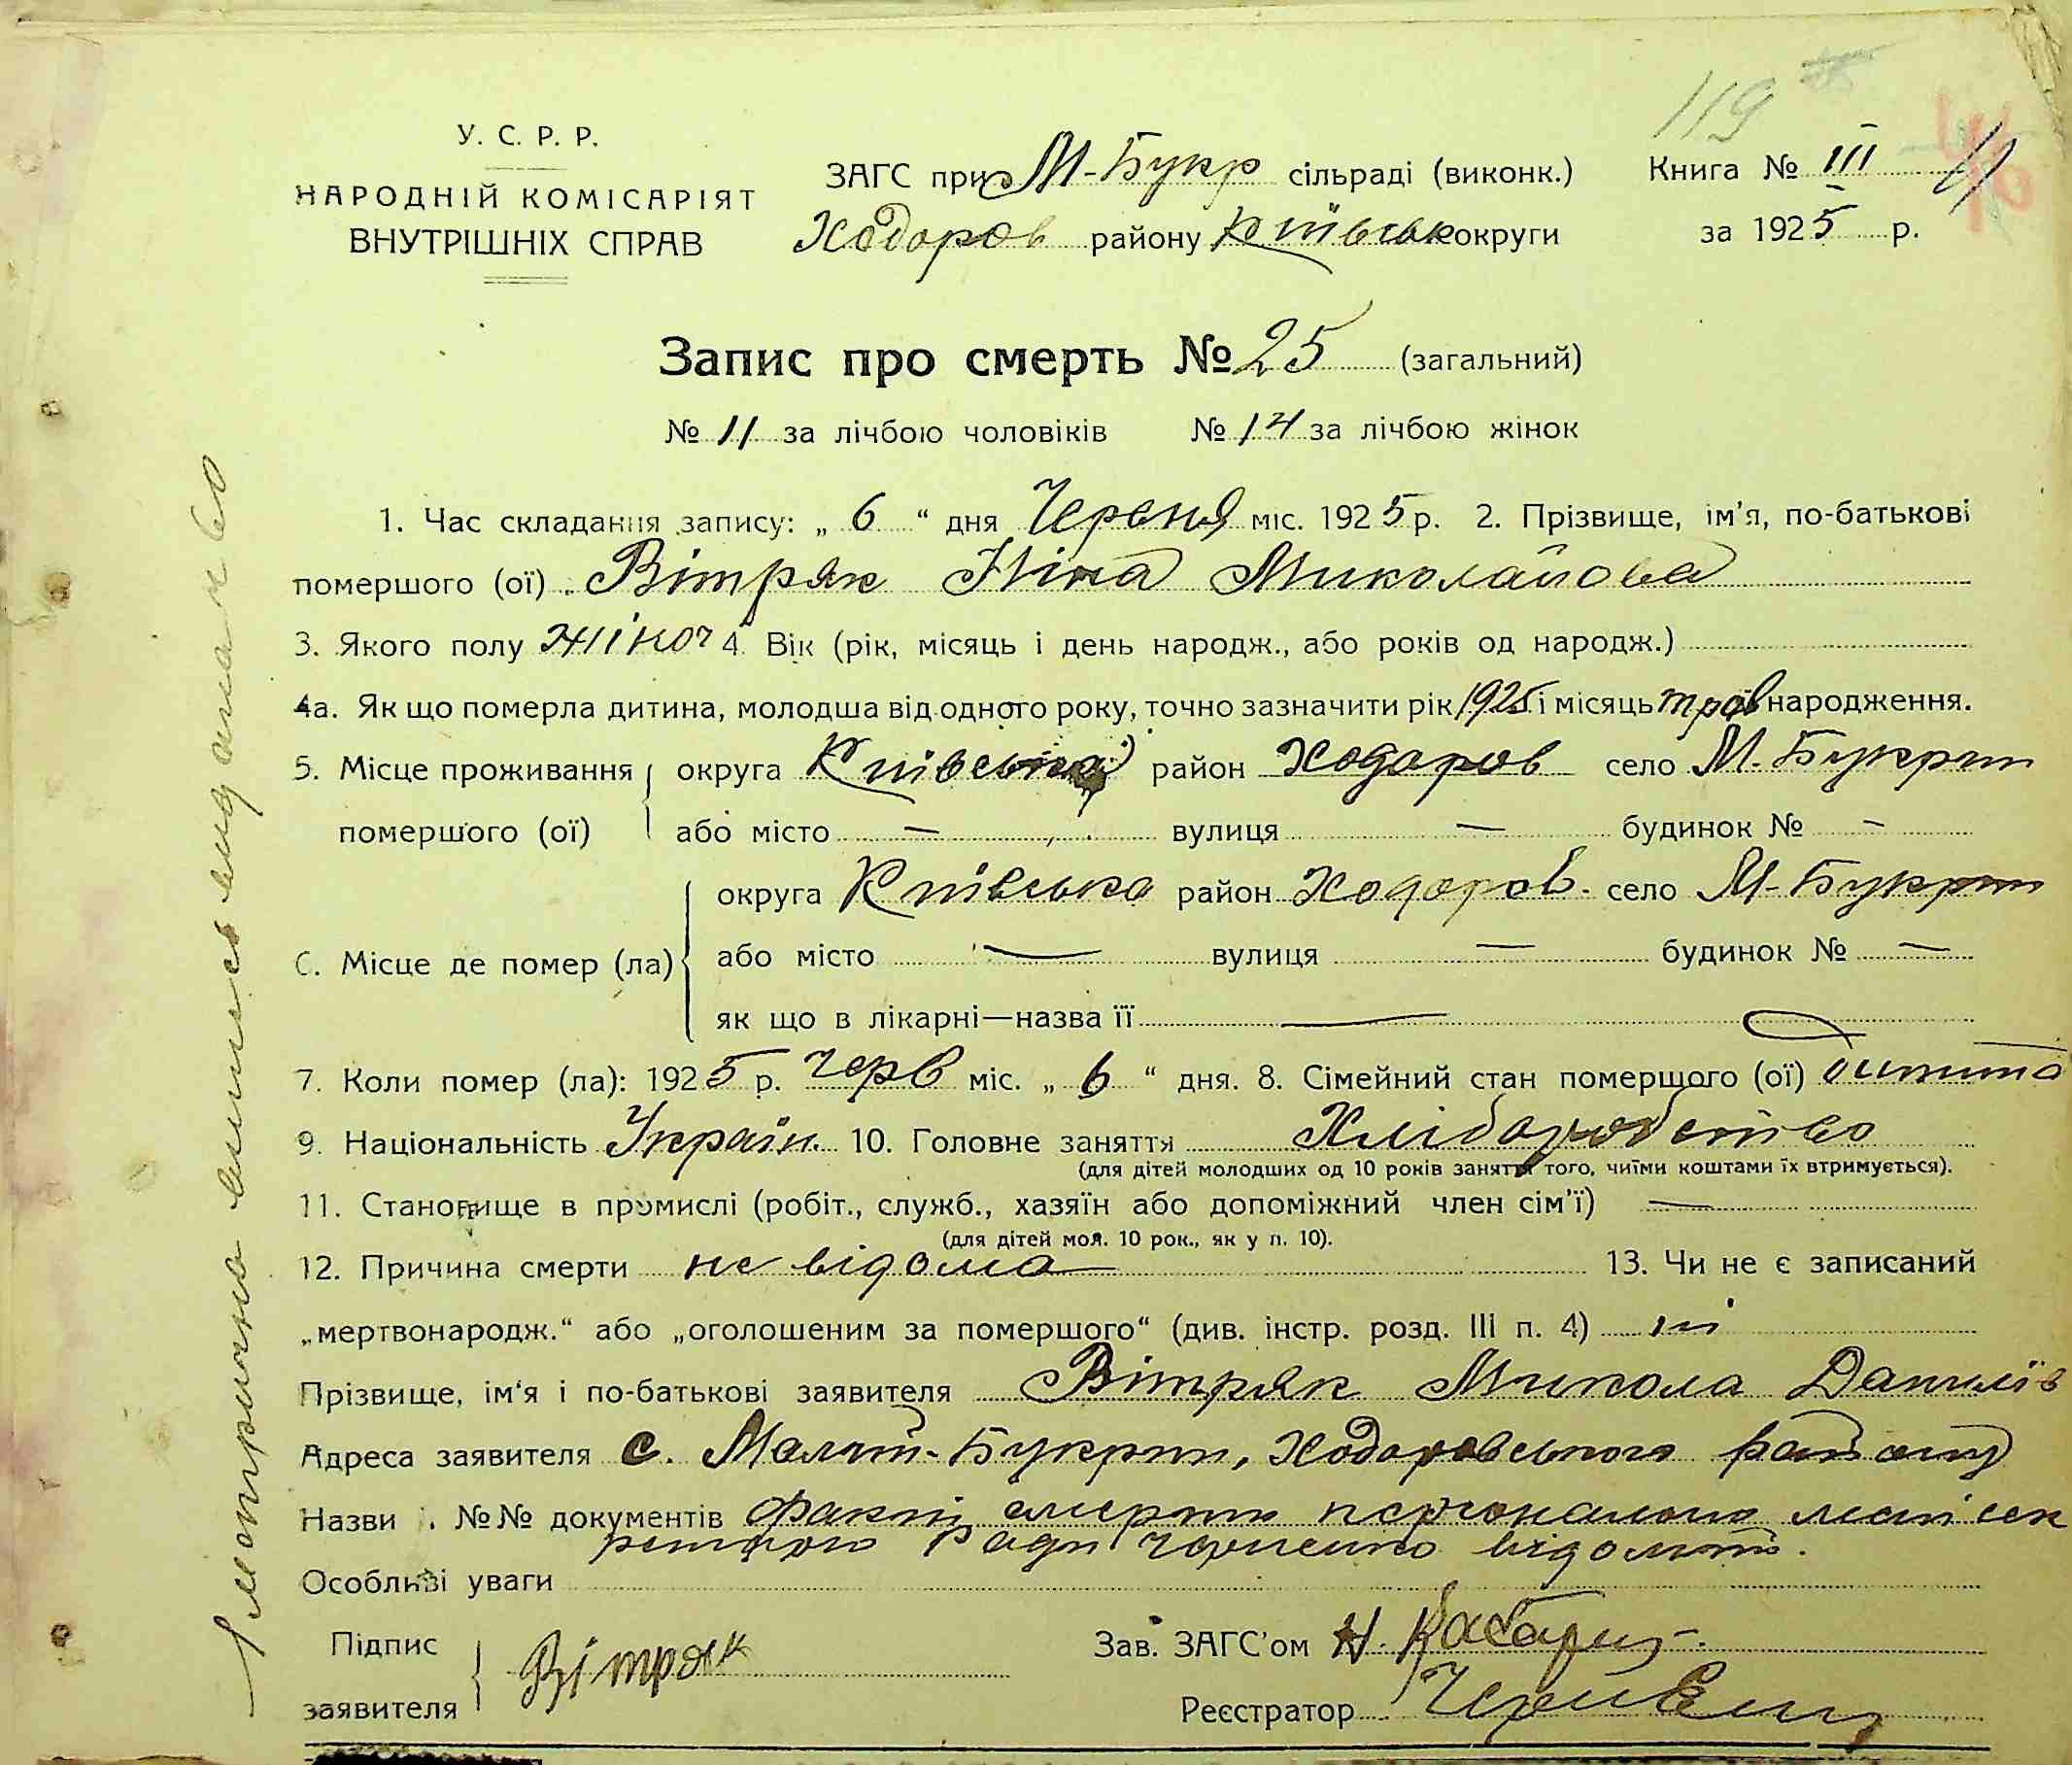 119
У. С. Р. Р.
НАРОДНІЙ КОМІСАРІЯТ
ВНУТРІШНІХ СПРАВ
ЗАГС при М-Букр сільраді (виконк.)
Ходоров району Київськ округи
Книга № III
за 1925 р.
Запис про смерть № 25 (загальний)
№ 11 за лічбою чоловіків № 14 за лічбою жінок
1. Час складання запису: „ 6 “ дня Червня міс. 1925 р. 2. Прізвище, ім'я, по-батькові
помершого (ої) Вітряк Ніна Миколайова
3. Якого полу жіноч 4. Вік (рік, місяць і день народж., або років од народж.)
4а. Як що померла дитина, молодша від одного року, точно зазначити рік 1925 і місяць трав народження.
5. Місце проживання округа Київська район Ходоров село М. Букрин
помершого (ої) або місто — вулиця — будинок № —
округа Київська район Ходоров. село М-Букрин
С. Місце де помер (ла) або місто — вулиця — будинок № —
як що в лікарні—назва її —
7. Коли помер (ла): 1925 р. черв міс. „ 6 “ дня. 8. Сімейний стан померщого (ої) дитина
9. Національність Україн. 10. Головне заняття Хліборобство
(для дітей молодших од 10 років заняття того, чиїми коштами їх втримується).
11. Становище в промислі (робіт., служб., хазяїн або допоміжний член сім'ї) —
(для дітей мол. 10 рок., як у п. 10).
12. Причина смерти не відома 13. Чи не є записаний
„мертвонародж.“ або „оголошеним за помершого“ (див. інстр. розд. III п. 4) ні
Прізвище, ім'я і по-батькові заявителя Вітряк Микола Данилів
Адреса заявителя с. Малий-Букрин, Ходоровського району
Назви і №№ документів факт смерти персонально сек
ретарю Ради Черненко відомий.
Особливі уваги
Підпис
заявителя Вітряк
Зав. ЗАГС'ом
Реєстратор